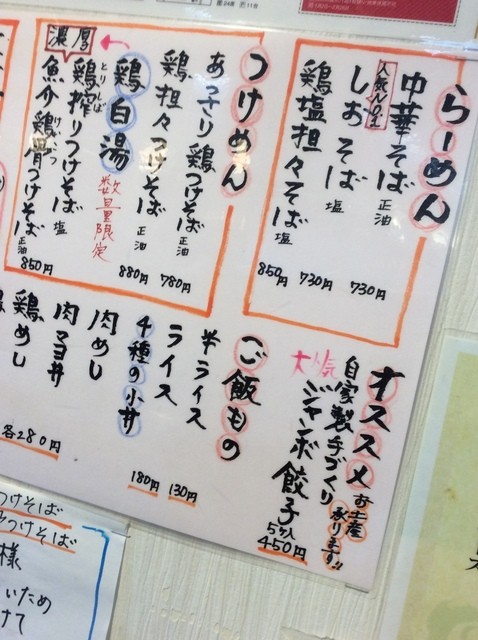 らーめん
中華そば 正油 730円
人気No.1
しおそば 塩 730円
鶏塩担々そば 塩 850円
つけめん
あっさり鶏つけそば 正油 780円
鶏担々つけそば 正油 880円
鶏白湯
数量限定
濃厚
鶏搾りつけそば 塩
魚介鶏骨つけそば 正油
850円
オススメ
お土産承ります!!
自家製手づくり
大人気
ジャンボ餃子
5ヶ入
450円
ご飯もの
半ライス 130円
ライス 180円
4種の小丼
肉めし
肉マヨ丼
鶏めし
各280円
つけそば
つけそば
様
いため
けて